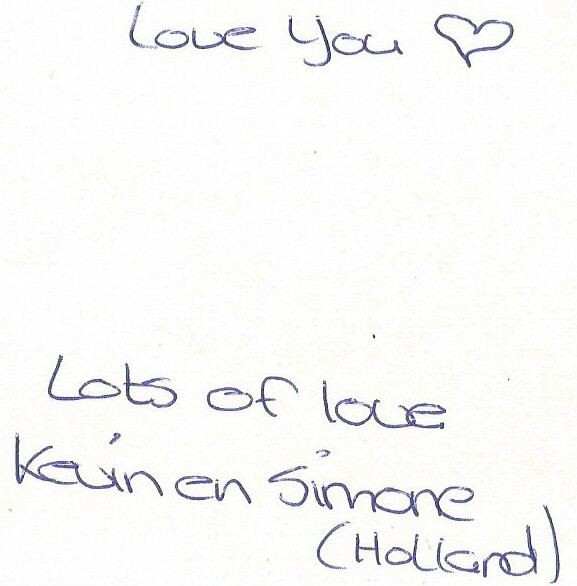 Love You ♡
Lots of love
Kevin en Simone
(Holland)